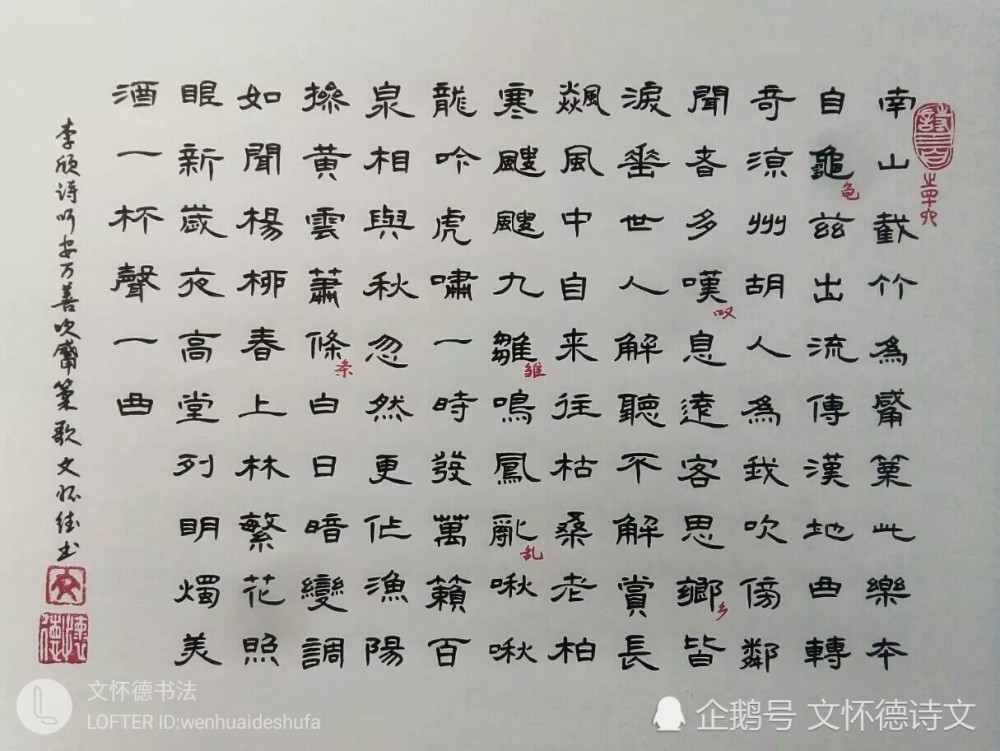 詩三百
之四十
南山截竹為觱篥此樂本
自龜茲出流傳漢地曲轉
龟
奇涼州胡人為我吹傍鄰
聞者多嘆息遠客思鄉皆
叹
乡
淚垂世人解聽不解賞長
飆風中自来往枯桑老柏
寒颼颼九雛鳴鳳亂啾啾
雏
乱
龍吟虎嘯一時發萬籟百
泉相與秋忽然更作漁陽
摻黃雲蕭條白日暗變調
条
如聞楊柳春上林繁花照
眼新歲夜高堂列明燭美
酒一杯聲一曲
李颀诗听安万善吹觱篥歌文怀德书
文
懷德
文怀德书法
LOFTER ID:wenhuaideshufa
企鹅号 文怀德诗文